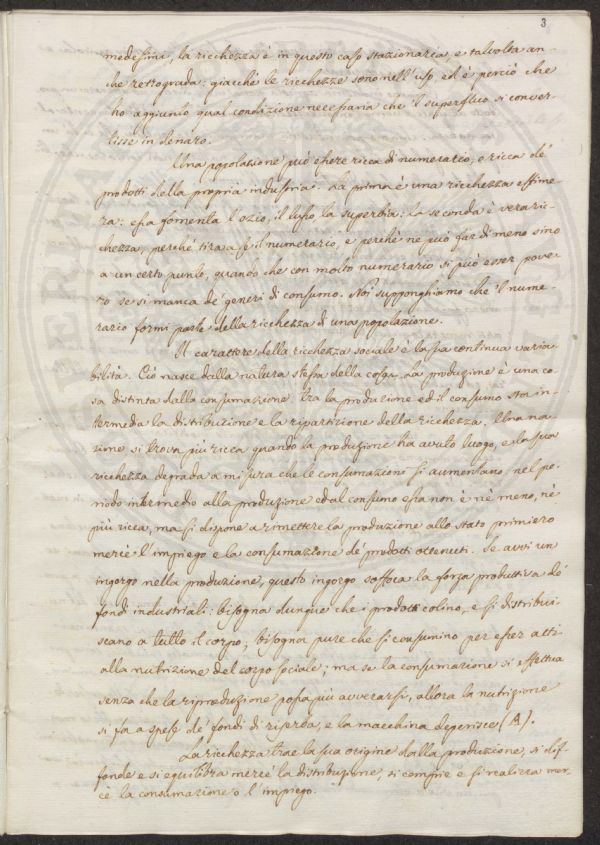 3
medesimi, la ricchezza è in questo caso stazionaria, e talvolta an-
che retrograda: giacchè le ricchezze sono nell'uso, ed è perciò che
ho aggiunto qual condizione necessaria che 'l superfluo si conver-
tisse in denaro.
Una popolazione può essere ricca di numerario, e ricca de'
prodotti della propria industria. La prima è una ricchezza effime
ra: essa fomenta l'ozio, il lusso, la superbia: la seconda è vera ric-
chezza, perchè tira a sè il numerario, e perchè ne può far di meno sino
a un certo punto, quando che con molto numerario si può esser pove-
ro se si manca de' generi di consumo. Noi supponghiamo che 'l nume-
rario formi parte della ricchezza d'una popolazione.
Il carattere della ricchezza sociale è la sua continua varia
bilità. Ciò nasce dalla natura stessa della cosa. La produzione è una co
sa distinta dalla consumazione. Tra la produzione ed il consumo sta in-
termedia la distribuzione e la ripartizione della ricchezza. Una na-
zione si trova più ricca quando la produzione ha avuto luogo, e la sua
ricchezza degrada a misura che le consumazioni si aumentano, nel pe-
riodo intermedio alla produzione ed al consumo essa non è nè meno, nè
più ricca, ma si dispone a rimettere la produzione allo stato primiero
mercè l'impiego e la consumazione de' prodotti ottenuti. Se avvi un
ingorgo nella produzione, questo ingorgo soffoca la forza produttiva de'
fondi industriali: bisogna dunque che i prodotti colino, e si distribui
scano a tutto il corpo; bisogna pure che si consumino per esser atti
alla nutrizione del corpo sociale; ma se la consumazione si effettua
senza che la riproduzione possa più avverarsi, allora la nutrizione
si fa a spese de' fondi di riserva, e la macchina deperisce (A).
La ricchezza trae la sua origine dalla produzione, si dif-
fonde e si equilibra mercè la distribuzione, si compie e si realizza mer-
cè la consumazione o l'impiego.